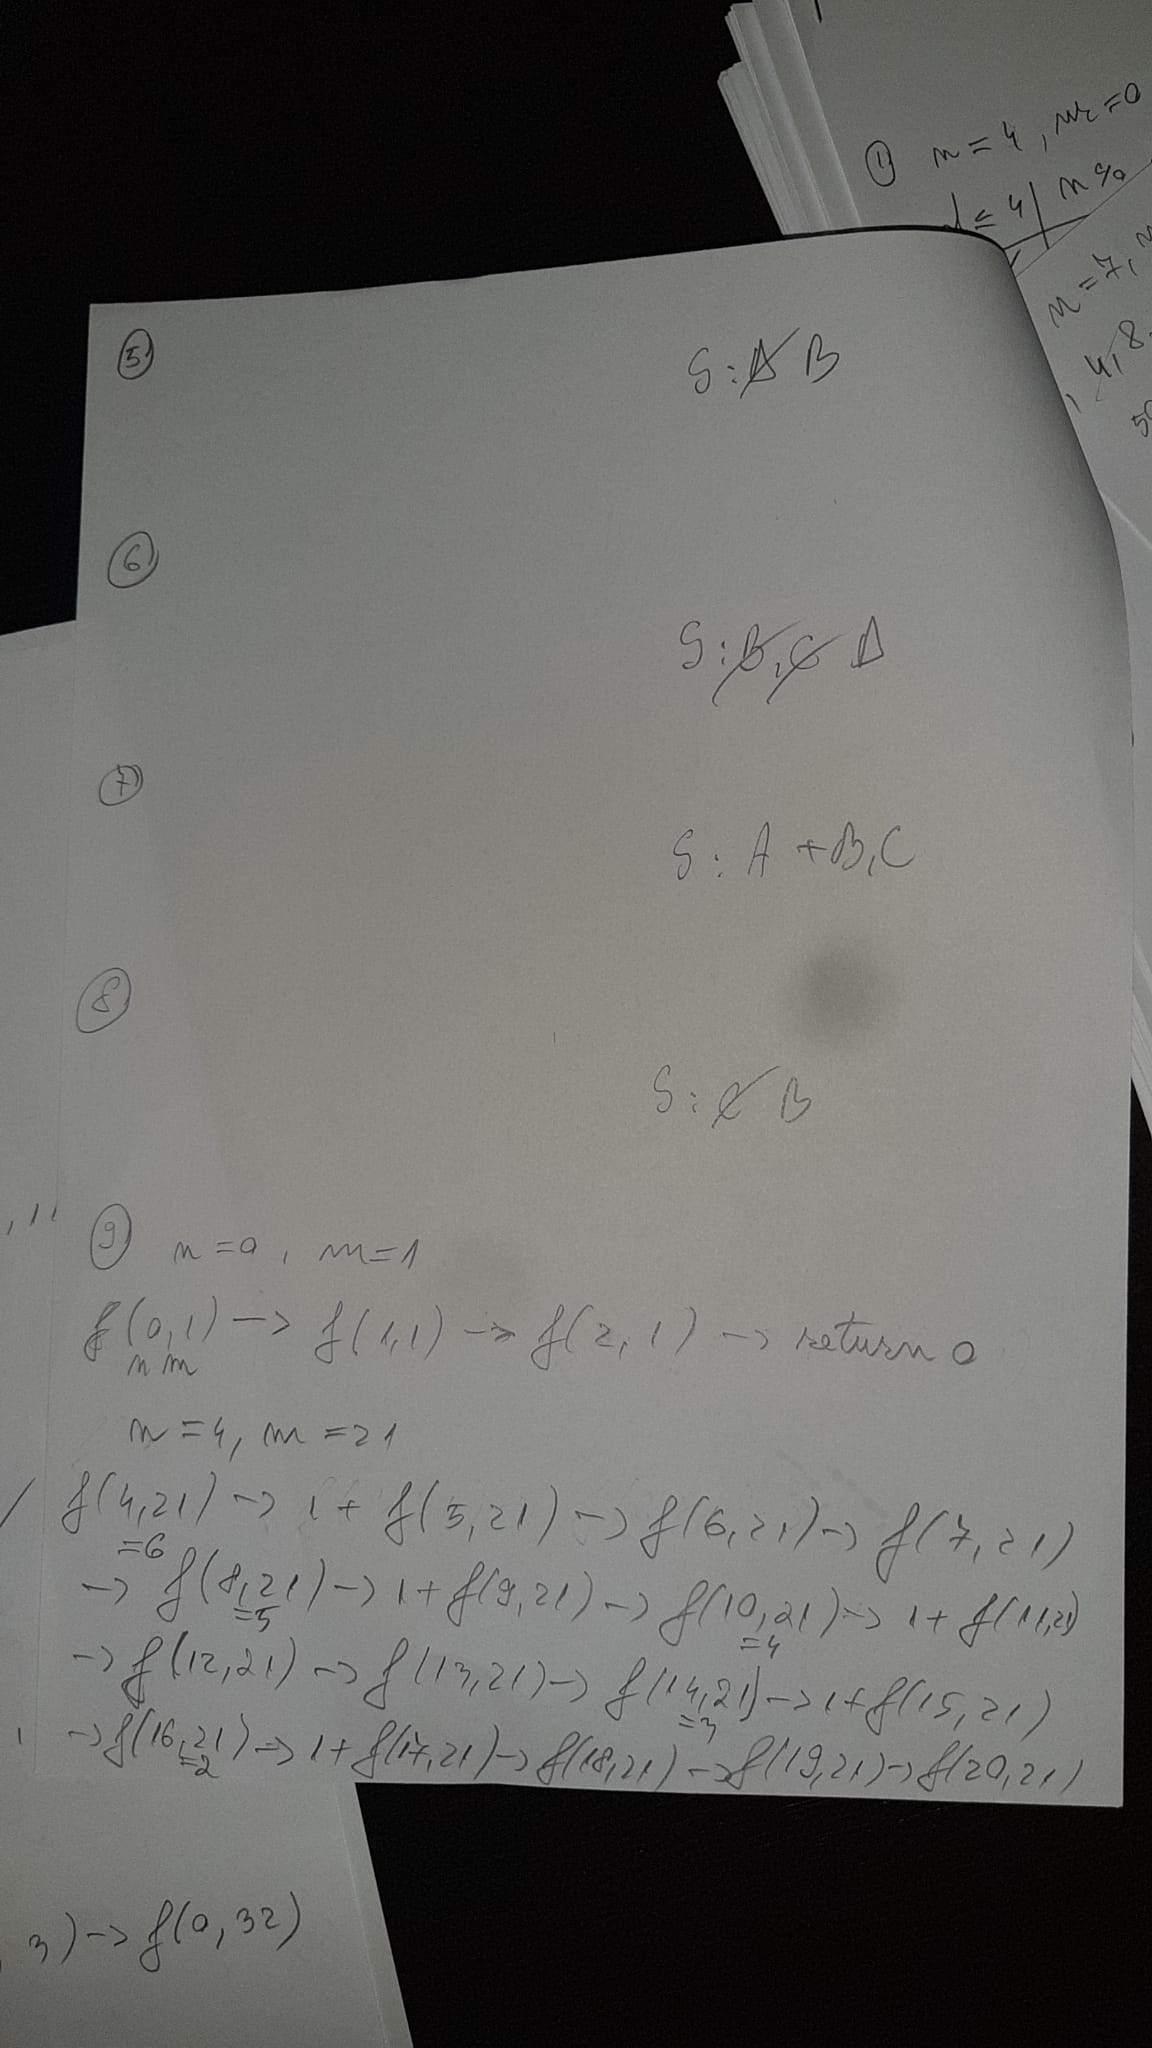 ① n = 4, nr = 0
d = 4 | n %
n = 7,
4, 8
⑤
S: A B
⑥
S: B, C A
⑦
S: A + B, C
⑧
S: C B
⑨ n = 0, m = 1
f(0,1) -> f(1,1) -> f(2,1) -> return 0
n m
n = 4, m = 21
f(4,21) -> 1 + f(5,21) -> f(6,21) -> f(7,21)
=6
-> f(8,21) -> 1 + f(9,21) -> f(10,21) -> 1 + f(11,21)
=5 =4
-> f(12,21) -> f(13,21) -> f(14,21) -> 1 + f(15,21)
=3
-> f(16,21) -> 1 + f(17,21) -> f(18,21) -> f(19,21) -> f(20,21)
=2
3) -> f(0,32)